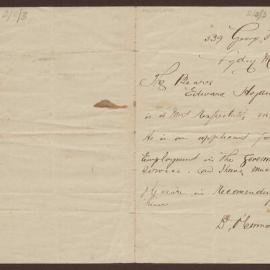 2/2/3
2/2/3
539 George S
Sydney M
The Bearer
Edward Hogan
is a Most Respectable m
He is an applicant for
Employment in the Governm
Service. and I have much
in Recomendi
B. O'Conno